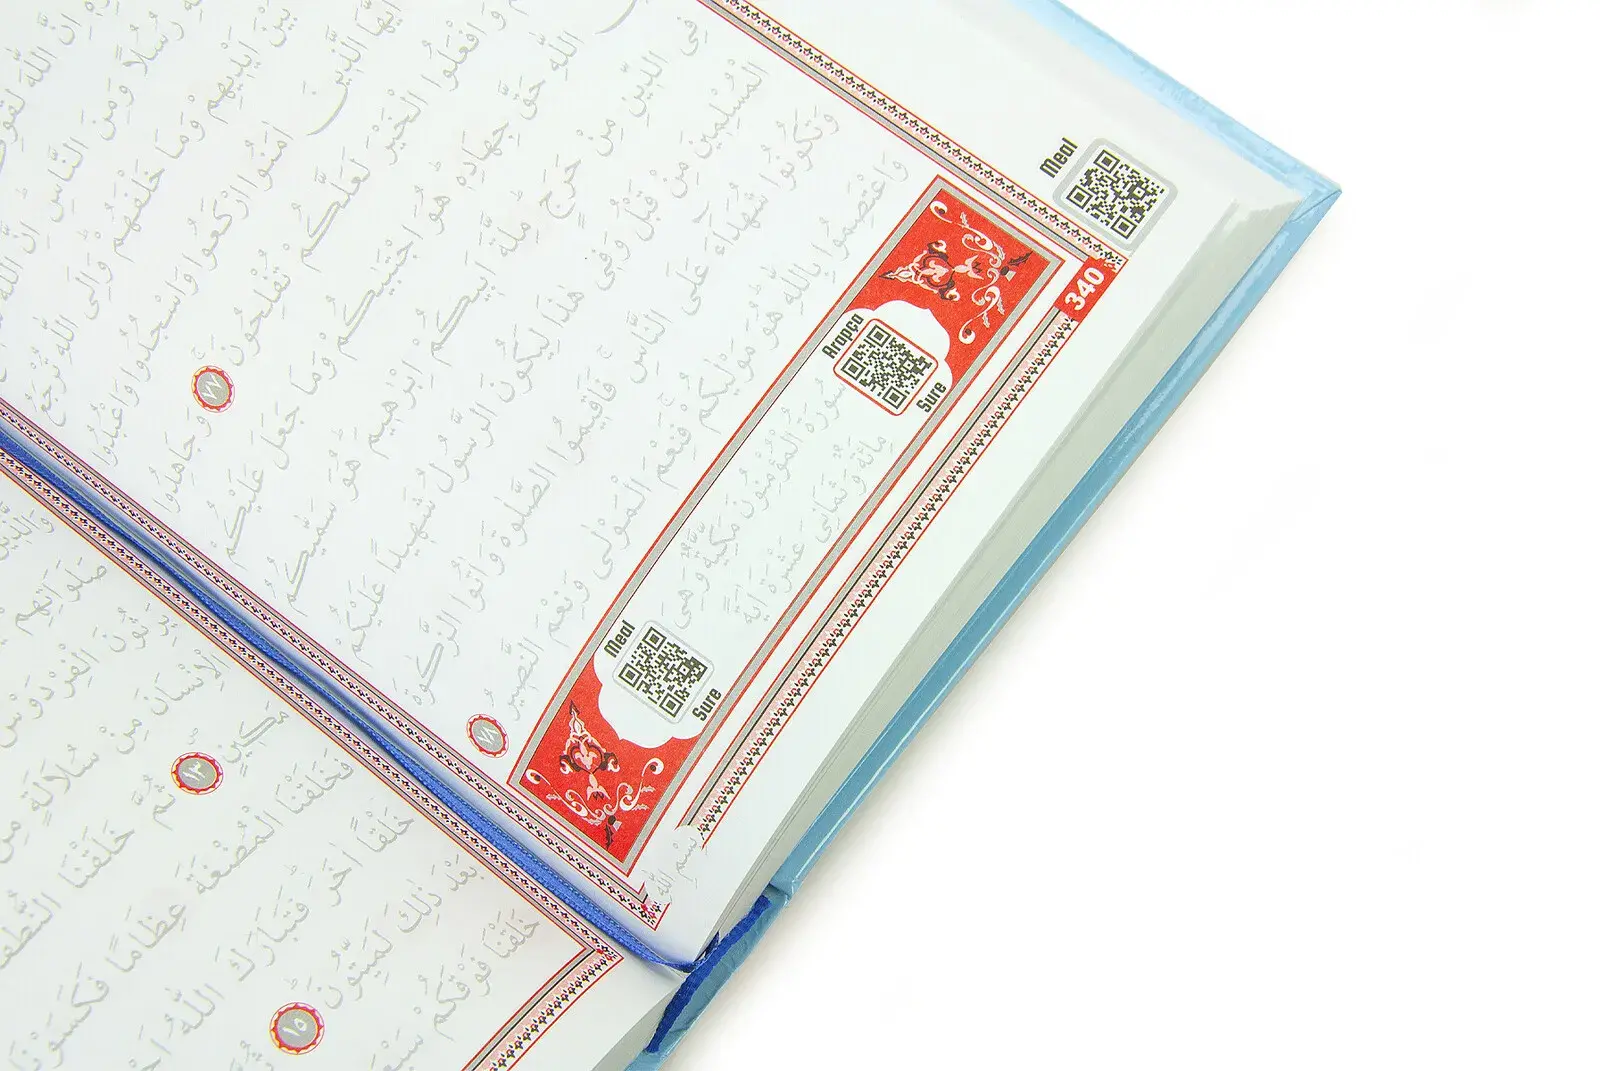 Meal
340
اِنَّ اللّٰهَ
رُسُلًا وَمِنَ النَّاسِ اِنَّ اللّٰهَ
بَيْنَ اَيْدِيهِمْ وَمَا خَلْفَهُمْ وَاِلَى اللّٰهِ تُرْجَعُ
اَيُّهَا الَّذِينَ اٰمَنُوا ارْكَعُوا وَاسْجُدُوا وَاعْبُدُوا
وَافْعَلُوا الْخَيْرَ لَعَلَّكُمْ تُفْلِحُونَ ٧٧ وَجَاهِدُوا
اللّٰهِ حَقَّ جِهَادِهِ هُوَ اجْتَبٰيكُمْ وَمَا جَعَلَ عَلَيْكُمْ
فِى الدِّينِ مِنْ حَرَجٍ مِلَّةَ اَبِيكُمْ اِبْرٰهِيمَ هُوَ سَمّٰيكُمُ
الْمُسْلِمِينَ مِنْ قَبْلُ وَفِى هٰذَا لِيَكُونَ الرَّسُولُ شَهِيدًا عَلَيْكُمْ
وَتَكُونُوا شُهَدَاءَ عَلَى النَّاسِ فَاَقِيمُوا الصَّلٰوةَ وَاٰتُوا الزَّكٰوةَ
وَاعْتَصِمُوا بِاللّٰهِ هُوَ مَوْلٰيكُمْ فَنِعْمَ الْمَوْلٰى وَنِعْمَ النَّصِيرُ ٧٨
Arapça
Sure
سُورَةُ الْمُؤْمِنُونَ مَكِّيَّةٌ وَهِىَ
مِائَةٌ وَثَمَانِى عَشْرَةَ اٰيَةً
Meal
Sure
بِسْمِ اللّٰهِ
وَالَّذِينَ
صَلَوَاتِهِمْ
يَرِثُونَ الْفِرْدَوْسَ
الْاِنْسَانَ مِنْ سُلَالَةٍ مِنْ
مَكِينٍ ١٣ ثُمَّ خَلَقْنَا النُّطْفَةَ
فَخَلَقْنَا الْمُضْغَةَ عِظَامًا فَكَسَوْنَا
خَلْقًا اٰخَرَ فَتَبَارَكَ اللّٰهُ
بَعْدَ ذٰلِكَ لَمَيِّتُونَ ١٥
خَلَقْنَا فَوْقَكُمْ سَبْعَ